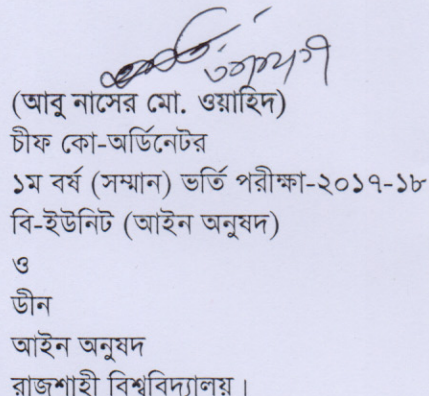 (আবু নাসের মো. ওয়াহিদ)
চীফ কো-অর্ডিনেটর
১ম বর্ষ (সম্মান) ভর্তি পরীক্ষা-২০১৭-১৮
বি-ইউনিট (আইন অনুষদ)
ও
ডীন
আইন অনুষদ
রাজশাহী বিশ্ববিদ্যালয়।